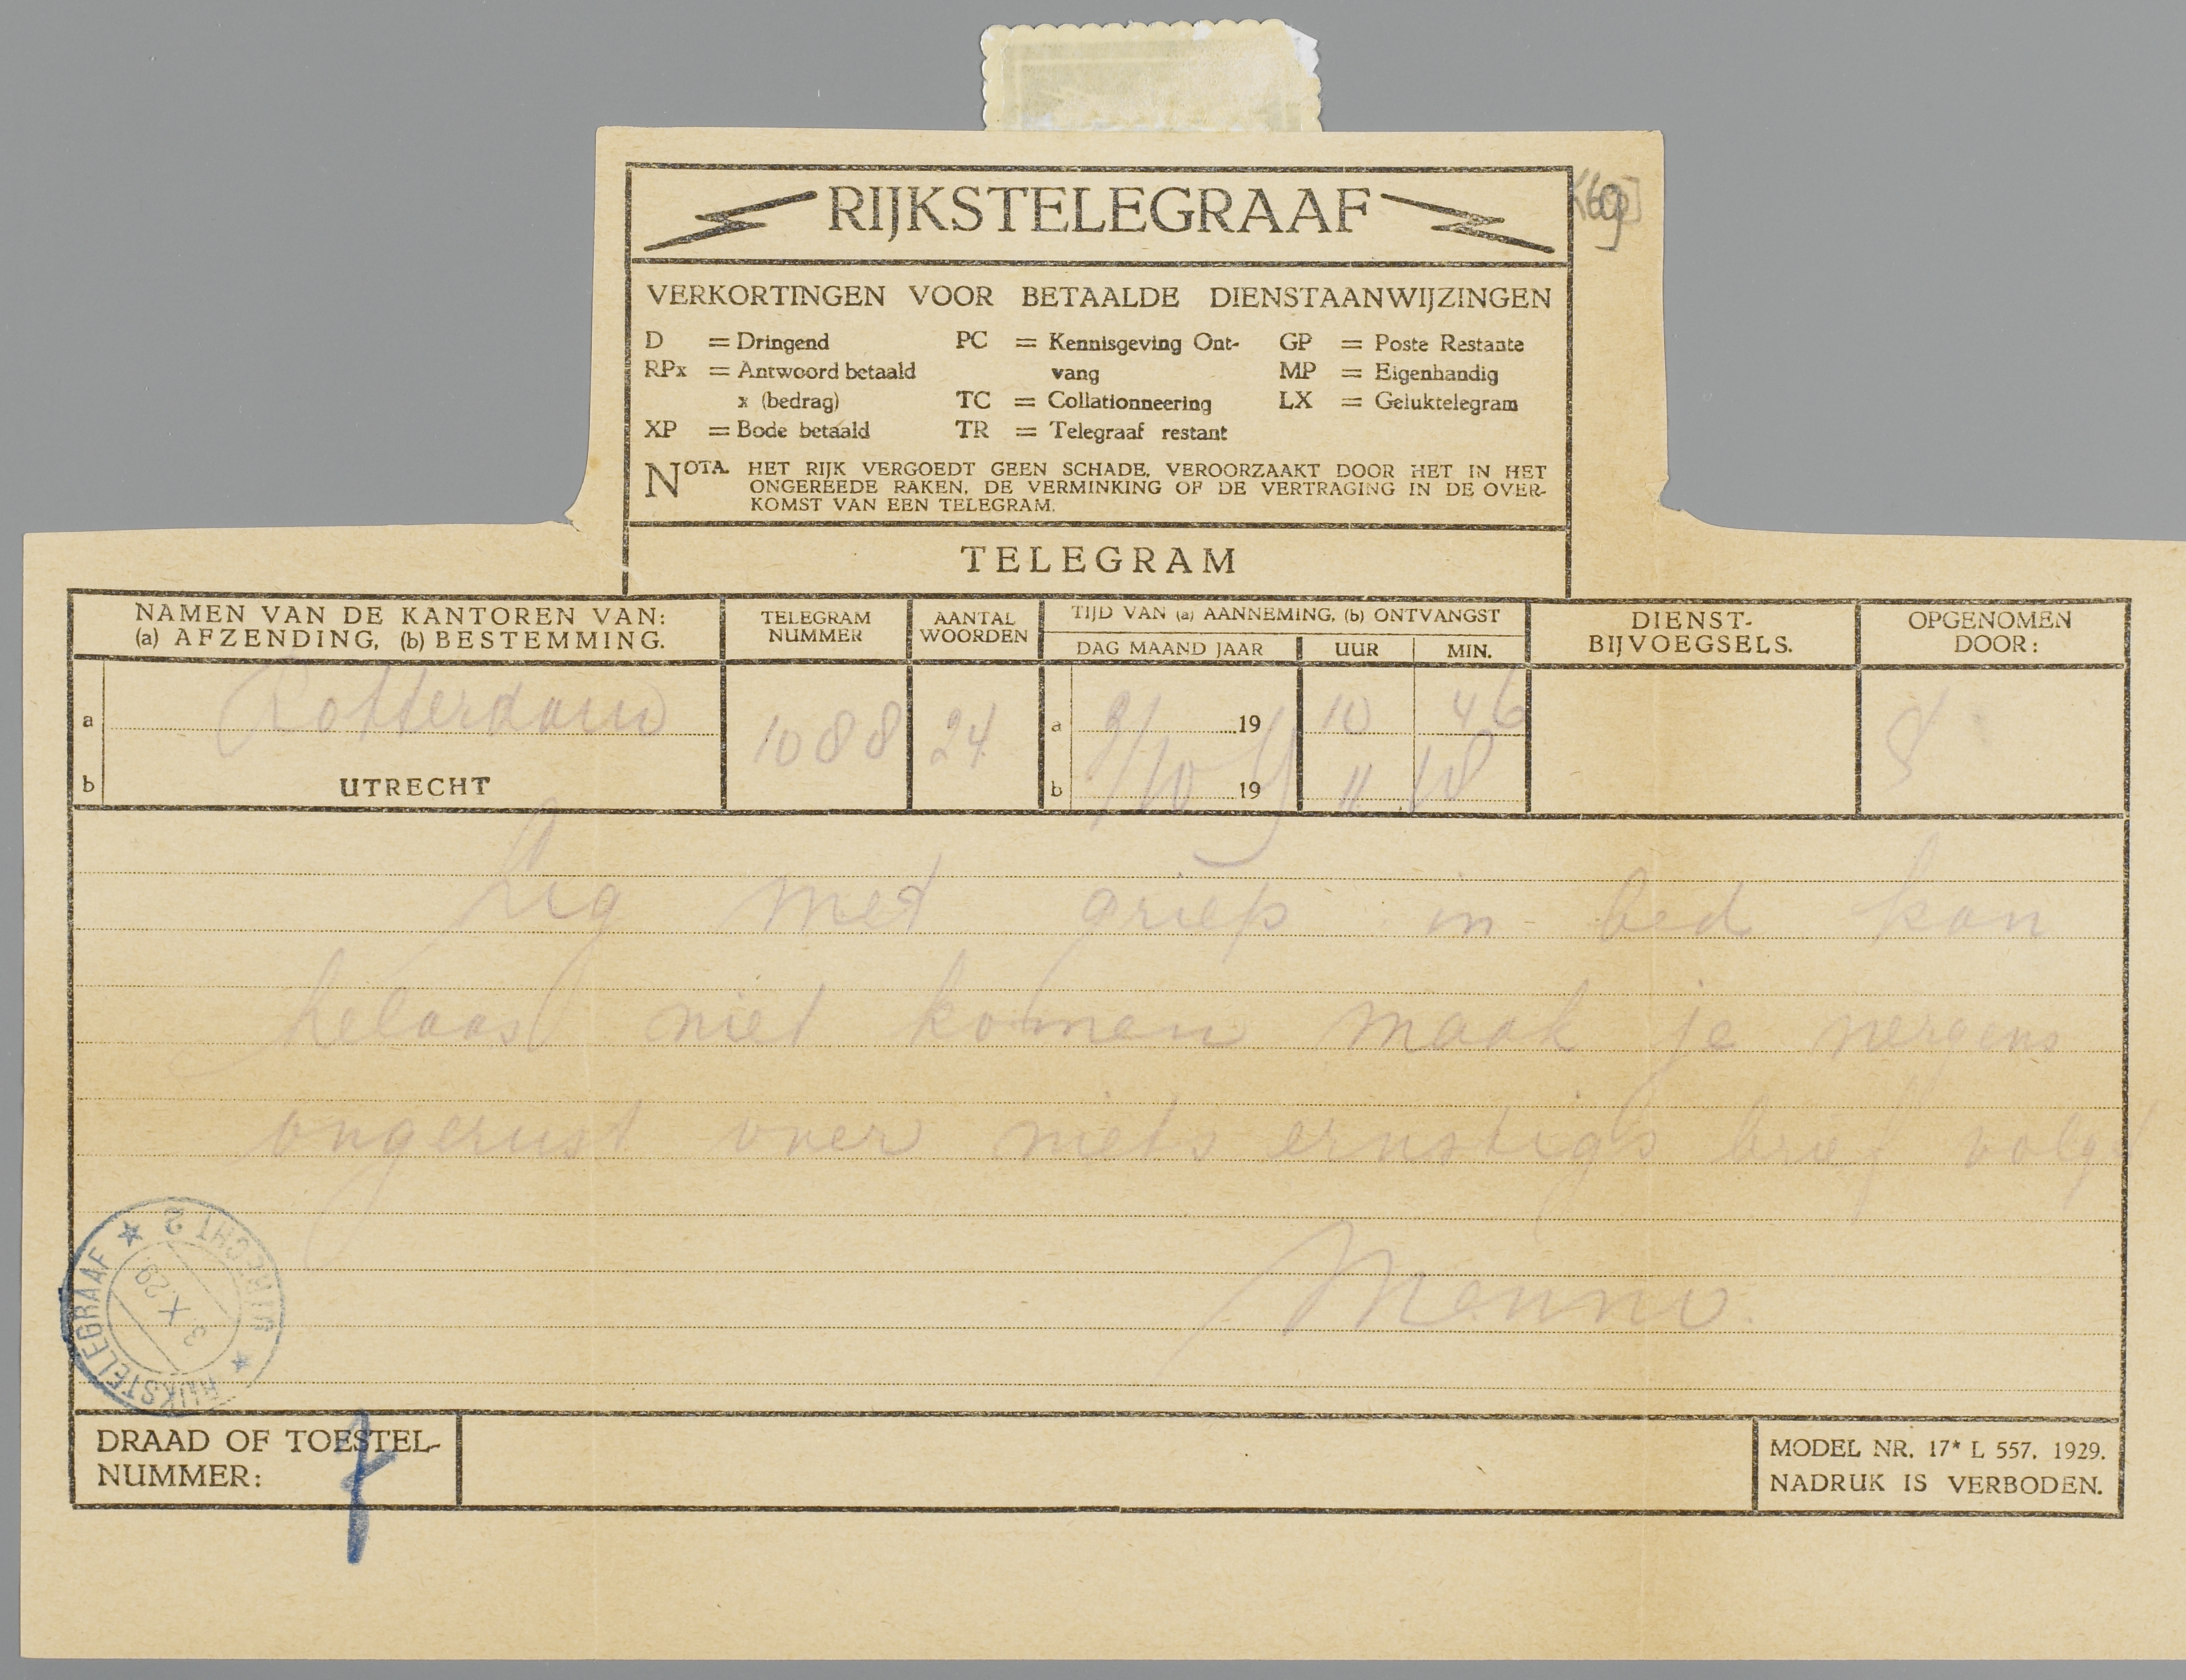 RIJKSTELEGRAAF
VERKORTINGEN VOOR BETAALDE DIENSTAANWIJZINGEN
D = Dringend PC = Kennisgeving Ont- GP = Poste Restante
RPx = Antwoord betaald vang MP = Eigenhandig
x (bedrag) TC = Collationneering LX = Geluktelegram
XP = Bode betaald TR = Telegraaf restant
NOTA. HET RIJK VERGOEDT GEEN SCHADE, VEROORZAAKT DOOR HET IN HET
ONGEREEDE RAKEN, DE VERMINKING OF DE VERTRAGING IN DE OVER-
KOMST VAN EEN TELEGRAM.
TELEGRAM
NAMEN VAN DE KANTOREN VAN:
(a) AFZENDING, (b) BESTEMMING.
TELEGRAM
NUMMER
AANTAL
WOORDEN
TIJD VAN (a) AANNEMING, (b) ONTVANGST
DAG MAAND JAAR UUR MIN.
DIENST-
BIJVOEGSELS.
OPGENOMEN
DOOR:
a Rotterdam 1088 24 a 19 10 46
b UTRECHT b 19 11 18
Lig met griep in bed kan
helaas niet komen maak je nergens
ongerust over niets ernstigs brief volgt
Menno.
RIJKSTELEGRAAF * UTRECHT 2 *
3.X.29
DRAAD OF TOESTEL-
NUMMER:
MODEL NR. 17* L 557. 1929.
NADRUK IS VERBODEN.